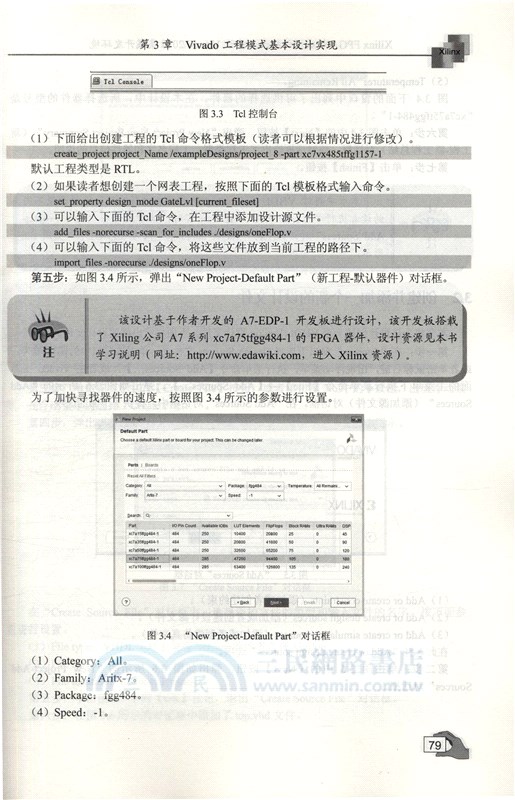 第 3 章 Vivado 工程模式基本设计实现
Xilinx
Tcl Console
图 3.3 Tcl 控制台
（1）下面给出创建工程的 Tcl 命令格式模板（读者可以根据情况进行修改）。
create_project project_Name /exampleDesigns/project_8 -part xc7vx485tffg1157-1
默认工程类型是 RTL。
（2）如果读者想创建一个网表工程，按照下面的 Tcl 模板格式输入命令。
set_property design_mode GateLvl [current_fileset]
（3）可以输入下面的 Tcl 命令，在工程中添加设计源文件。
add_files -norecurse -scan_for_includes ./designs/oneFlop.v
（4）可以输入下面的 Tcl 命令，将这些文件放到当前工程的路径下。
import_files -norecurse ./designs/oneFlop.v
第五步：如图 3.4 所示，弹出“New Project-Default Part”（新工程-默认器件）对话框。
该设计基于作者开发的 A7-EDP-1 开发板进行设计，该开发板搭载
了 Xiling 公司 A7 系列 xc7a75tfgg484-1 的 FPGA 器件，设计资源见本书
学习说明（网址：http://www.edawiki.com，进入 Xilinx 资源）。
注
为了加快寻找器件的速度，按照图 3.4 所示的参数进行设置。
New Project
Default Part
Choose a default Xilinx part or board for your project. This can be changed later.
Parts | Boards
Reset All Filters
Category: All Package: fgg484 Temperature: All Remain...
Family: Artix-7 Speed: -1
Search:
Part I/O Pin Count Available IOBs LUT Elements FlipFlops Block RAMs Ultra RAMs DSP
xc7a15tfgg484-1 484 250 10400 20800 25 0 45
xc7a35tfgg484-1 484 250 20800 41600 50 0 90
xc7a50tfgg484-1 484 250 32600 65200 75 0 120
xc7a75tfgg484-1 484 285 47200 94400 105 0 180
xc7a100tfgg484-1 484 285 63400 126800 135 0 240
< Back Next > Finish Cancel
图 3.4 “New Project-Default Part”对话框
（1）Category：All。
（2）Family：Aritx-7。
（3）Package：fgg484。
（4）Speed：-1。
三民網路書店
www.sanmin.com.tw
79